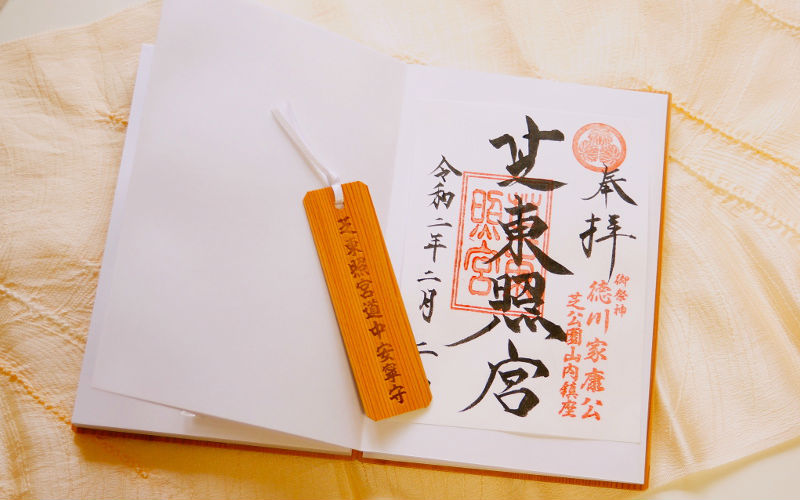 奉拝
芝東照宮
令和二年二月二
御祭神
徳川家康公
芝公園山内鎮座
芝東照宮道中安寧守